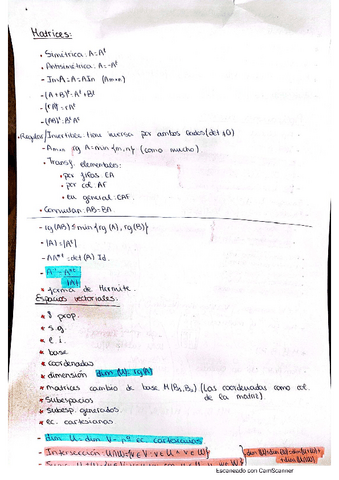 Matrices:
• Simétrica: A=Aᵗ
• Antisimétrica: A=-Aᵗ
- ImA=A=AIn (Amxn)
- (A+B)ᵗ=Aᵗ+Bᵗ
- (rA)ᵗ=rAᵗ
- (AB)ᵗ=BᵗAᵗ
• Regular/Invertible: tiene inversa por ambos lados (det≠0)
- Amxn rg A=min{m,n} (como mucho)
• Transf. elementales:
• por filas EA
• por col. AF
• en general: EAF
• Conmutan: AB=BA
- rg(AB)≤min{rg(A), rg(B)}
- |A|=|Aᵗ|
- det(A) Id.
|A|
* forma de Hermite.
Espacios vectoriales:
* 8 prop.
* s.g.
* l.i.
* base
* coordenadas
* dimensión dim(U)=rg(A)
* matrices cambio de base M(B₁,B₂) (Las coordenadas como col. de la matriz).
* Subespacios
* subesp. generados.
* ec. cartesianas
- dim U = dim V - nº ec. cartesianas
- Intersección U∩W={v∈V: v∈U ∧ v∈W}
Escaneado con CamScanner